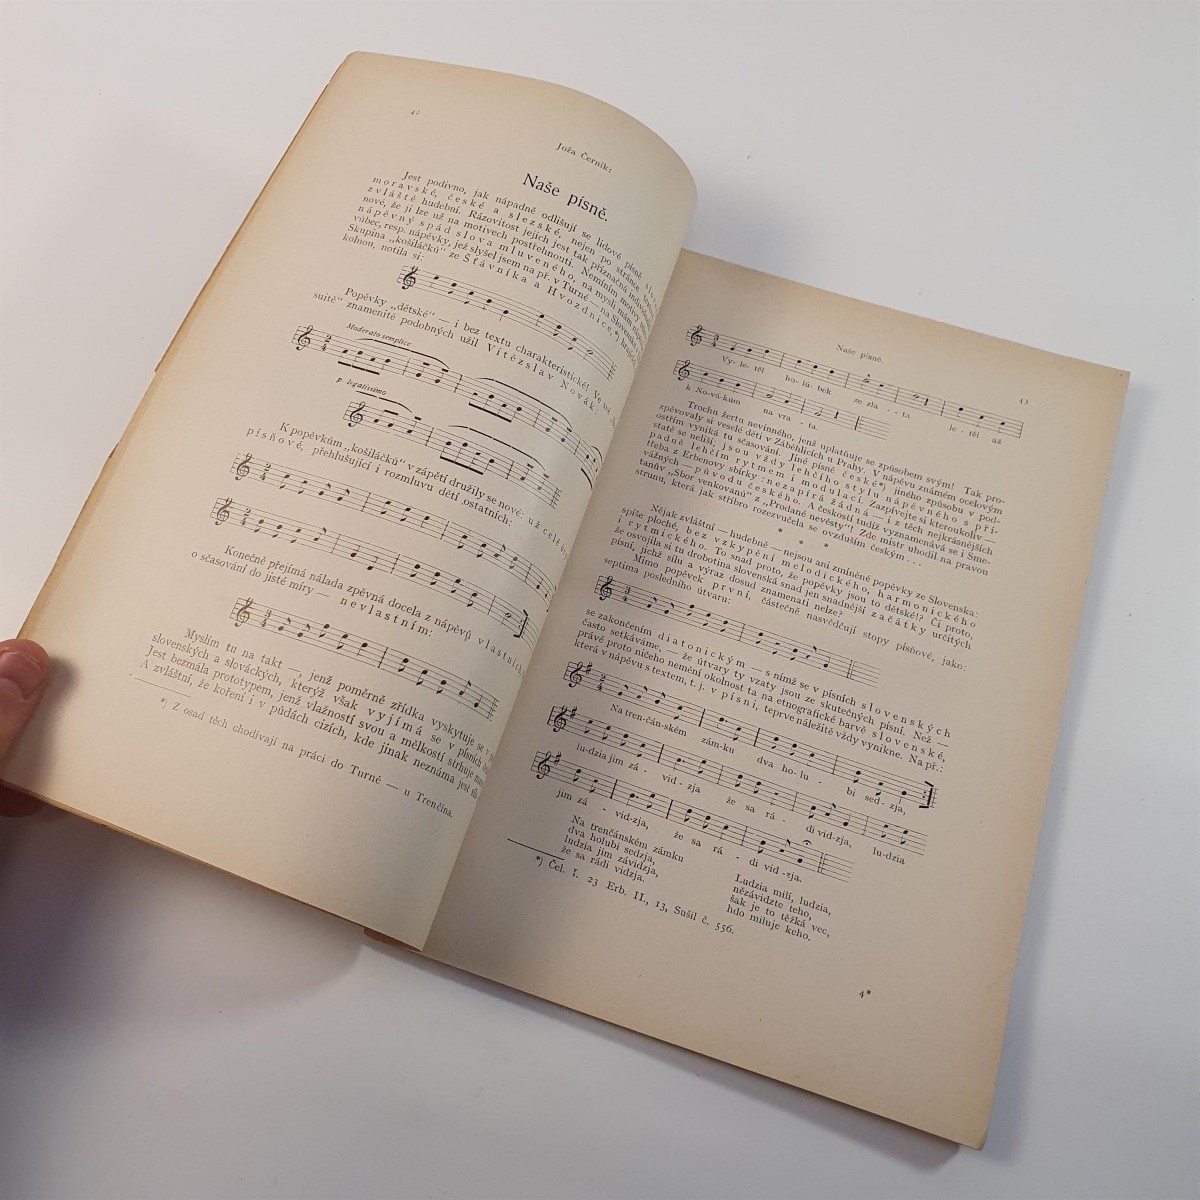 42
Joža Černík:
Naše písně.
Jest podivno, jak nápadně odlišují se lidové písně
moravské, české a slezské, nejen po stránce
zvláště hudební. Rázovitost jejich jest tak příznačná
nové, že ji lze už na motivech postřehnouti. Nemíním motivy
nápěvný spád slova mluveného, na mysli mám
vůbec, resp. nápěvky, jež slyšel jsem na př. v Turné na Slovensku
Skupina „košiláčků“ ze Šťávníka a Hvozdnice,*)
kolnou, notila si:
Popěvky „dětské“ — i bez textu charakteristické! Ve
suitě“ znamenitě podobných užil Vítězslav Novák:
Moderato semplice
p. legatissimo
K popěvkům „košiláčků“ v zápětí družily se nové: už celé
písňové, přehlušující i rozmluvu dětí ostatních:
Konečně přejímá nálada zpěvná docela z nápěvů
o sčasování do jisté míry — nevlastním:
Myslím tu na takt —, jenž poměrně zřídka vyskytuje se v
slovenských a slováckých, kterýž však vyjímá se v písních
Jest bezmála prototypem, jenž vlažností svou a mělkostí strhuje
A zvláštní, že koření i v půdách cizích, kde jinak neznáma jest
*) Z osad těch chodívají na práci do Turné — u Trenčína.
Naše písně.
43
Vy- le- těl ho- lú- bek ze zla - - ta je- těl až
k No-vá-kům na vra - - ta.
Trochu žertu nevinného, jenž uplatňuje se způsobem svým! Tak pro-
zpěvovaly si veselé děti v Záběhlicích u Prahy. V nápěvu známém ocelovým
ostřím vyniká tu sčasování. Jiné písně české*) jiného způsobu v pod-
statě se neliší, jsou vždy lehčího stylu nápěvného s pří-
padně lehčím rytmem i modulací. Zazpívejte si kteroukoliv —
třeba z Erbenovy sbírky: nezapírá žádná — i z těch nejkrásnějších
vážných — původu českého. A českostí tudíž vyznamenává se i Sme-
tanův „Sbor venkovanů“ z „Prodané nevěsty“! Zde mistr uhodil na pravou
strunu, která jak stříbro rozezvučela se ovzduším českým . . .
* * *
Nějak zvláštní — hudebně i nejsou ani zmíněné popěvky ze Slovenska:
spíše ploché, bez vzkypění melodického, harmonického
i rytmického. To snad proto, že popěvky jsou to dětské!? Či proto,
že osvojila si tu drobotina slovenská snad jen snadnější začátky určitých
písní, jichž sílu a výraz dosud znamenati nelze?
Mimo popěvek první, částečně nasvědčují stopy písňové, jako:
septima posledního útvaru:
se zakončením diatonickým — s nímž se v písních slovenských
často setkáváme, — že útvary ty vzaty jsou ze skutečných písní. Než —
právě proto ničeho nemění okolnost ta na etnografické barvě slovenské,
která v nápěvu s textem, t. j. v písni, teprve náležitě vždy vynikne. Na př.:
Na tren-čán-ském zám-ku dva ho-lu - bi sed-zja,
lu-dzia jim zá - vid-zja že sa rá - di vid-zja, lu-dzia
jim zá - vid-zja, že sa rá - di vid-zja.
Na trenčánském zámku
dva holubi sedzja,
ludzia jim závidzja,
že sa rádi vidzja.
Ludzia milí, ludzia,
nězávidzte teho,
šak je to těžká vec,
hdo miluje keho.
*) Čel. I. 23 Erb. II., 13, Sušil č. 556.
4*